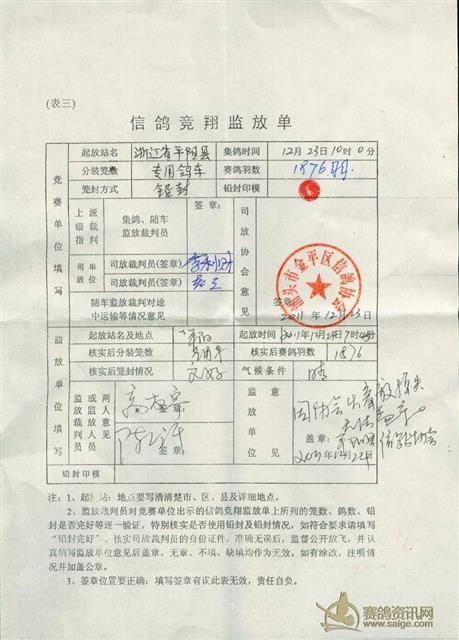 (表三)
信鸽竞翔监放单
竞赛单位填写
起放站名 浙江省平阳县 集鸽时间 12月23日10时0分
分装笼数 专用鸽车 赛鸽羽数 1876羽
笼封方式 铅封 铅封印模
上级指派裁判 集鸽、随车监放裁判员 签章:
司放单位 司放裁判员(签章)
司放裁判员(签章)
随车监放裁判对途中运输等情况意见
司放协会意见
汕头市金平区信鸽协会
签章:
2011年12月23日
监放单位填写
起放站名及地点 平阳 起放时间 2011年12月24日7时
核实后分装笼数 专用车 核实后赛鸽羽数 1876
核实后笼封情况 完好 气候条件 晴
监放或两人监放裁判人员意见 签章:
签章:
监放单位意见
盖章:
信鸽协会
2011年12月24日
铅封印模
注：1、起放站：地点要写清清楚市、区、县及详细地点。
2、监放裁判员对竞赛单位出示的信鸽竞翔监放单上所列的笼数、鸽数、铅
封是否完好等逐一验证，特别核实是否使用铅封及铅封情况，如符合要求请填写
“铅封完好”。核实司放裁判员的身份证件，准确无误后，监督公开放飞，并认
真填写监放单位意见后盖章。无章、不填、缺填均作为无效。如有涂改，注明情
况并加盖公章。
3、签章位置要正确：填写签章有误此表无效，责任自负。
赛鸽资讯网
www.saige.com